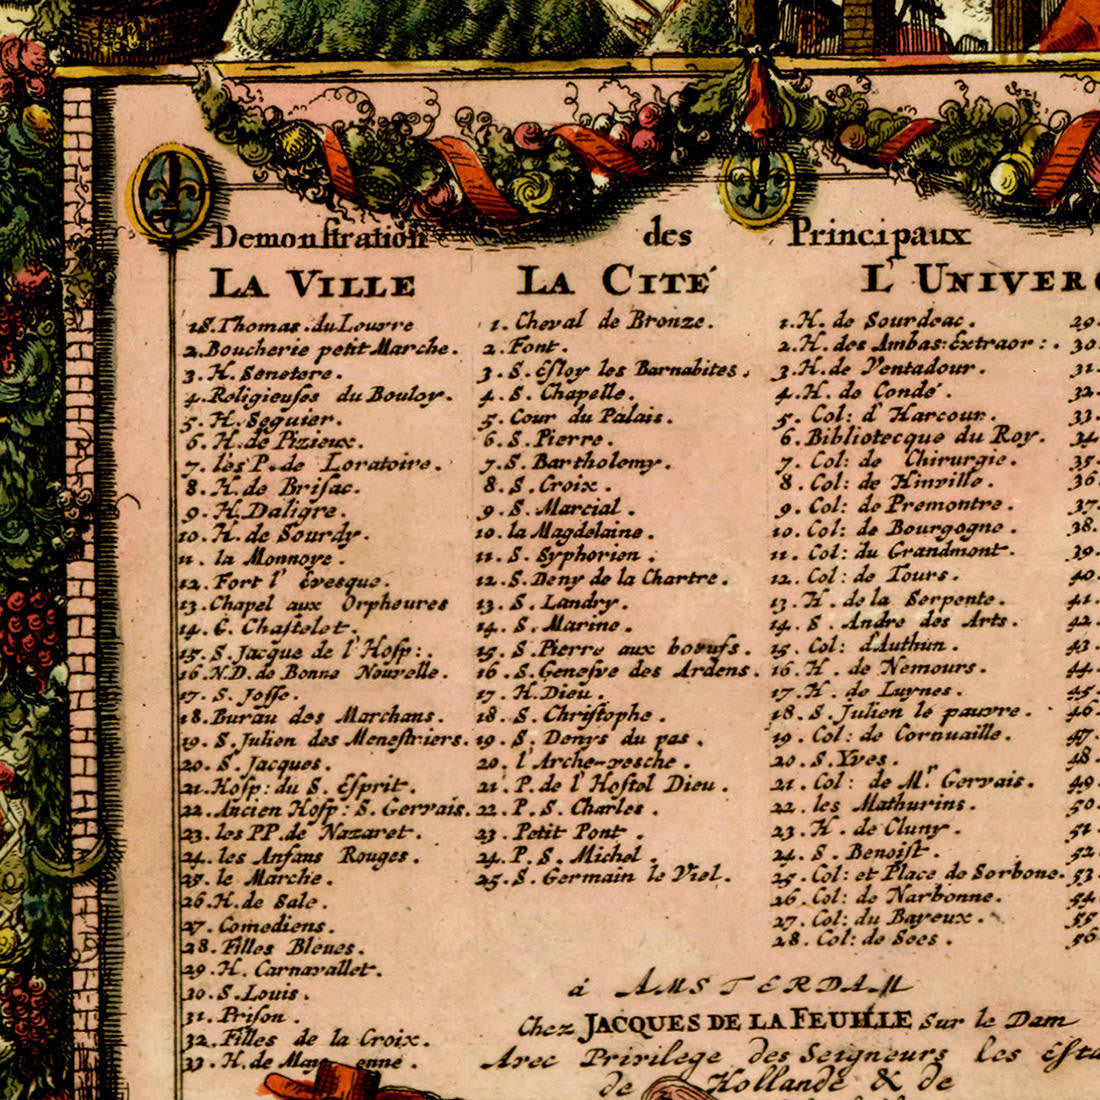 Demonstration des Principaux
LA VILLE
1S.Thomas.du Louvre
2.Boucherie petit Marche.
3.H.Senetere.
4.Religieuses du Bouloy.
5.H.Seguier.
6.H.de Pizieux.
7.les P.de Loratoire.
8.H.de Brisac.
9.H.Daligre.
10.H.de Sourdy.
11.la Monnoye.
12.Fort l' évesque.
13.Chapel aux Orpheures
14.G.Chastelet.
15.S.Jacque de l'Hosp:.
16.N.D.de Bonne Nouvelle.
17.S.Josse.
18.Burau des Marchans.
19.S.Julien des Menestriers.
20.S.Jacques.
21.Hosp:du S.Esprit.
22.Ancien Hosp:S.Gervais.
23.les PP.de Nazaret.
24.les Anfans Rouges.
25.le Marche.
26.H.de Sale.
27.Comediens.
28.Filles Bleues.
29.H.Carnavallet.
30.S.Louis.
31.Prison.
32.Filles de la Croix.
33.H.de
LA CITÉ
1.Cheval de Bronze.
2.Font.
3.S.Esloy les Barnabites.
4.S.Chapelle.
5.Cour du Palais.
6.S.Pierre.
7.S.Bartholemy.
8.S.Croix.
9.S.Marcial.
10.la Magdelaine.
11.S.Syphorien.
12.S.Deny de la Chartre.
13.S.Landry.
14.S.Marine.
15.S.Pierre aux boeufs.
16.S.Genesve des Ardens.
17.H.Dieu.
18.S.Christophe.
19.S.Denys du pas.
20.l'Arche-vesche.
21.P.de l'Hostel Dieu.
22.P.S.Charles.
23.Petit Pont.
24.P.S.Michel.
25.S.Germain le Viel.
L'UNIVER
1.H.de Sourdeac.
2.H.des Ambas:Extraor:.
3.H.de Ventadour.
4.H.de Condé.
5.Col:d'Harcour.
6.Bibliotecque du Roy.
7.Col:de Chirurgie.
8.Col:de Hinville.
9.Col:de Premontre.
10.Col:de Bourgogne.
11.Col:du Grandmont.
12.Col:de Tours.
13.H.de la Serpente.
14.S.Andre des Arts.
15.Col:d'Authun.
16.H.de Nemours.
17.H.de Luynes.
18.S.Julien le pauvre.
19.Col:de Cornuaille.
20.S.Yves.
21.Col:de Mr Gervais.
22.les Mathurins.
23.H.de Cluny.
24.S.Benoist.
25.Col:et Place de Sorbone.
26.Col:de Narbonne.
27.Col:du Bayeux.
28.Col:de Sees.
29.
30.
31.
32.
33.
34.
35.
36.
37.
38.
39.
40.
41.
42.
43.
44.
45.
46.
47.
48.
49.
50.
51.
52.
53.
54.
55.
56.
à AMSTERDAM
Chez JACQUES DE LA FEUILLE Sur le Dam
Avec Privilege des Seigneurs les Esta
de Hollande & de